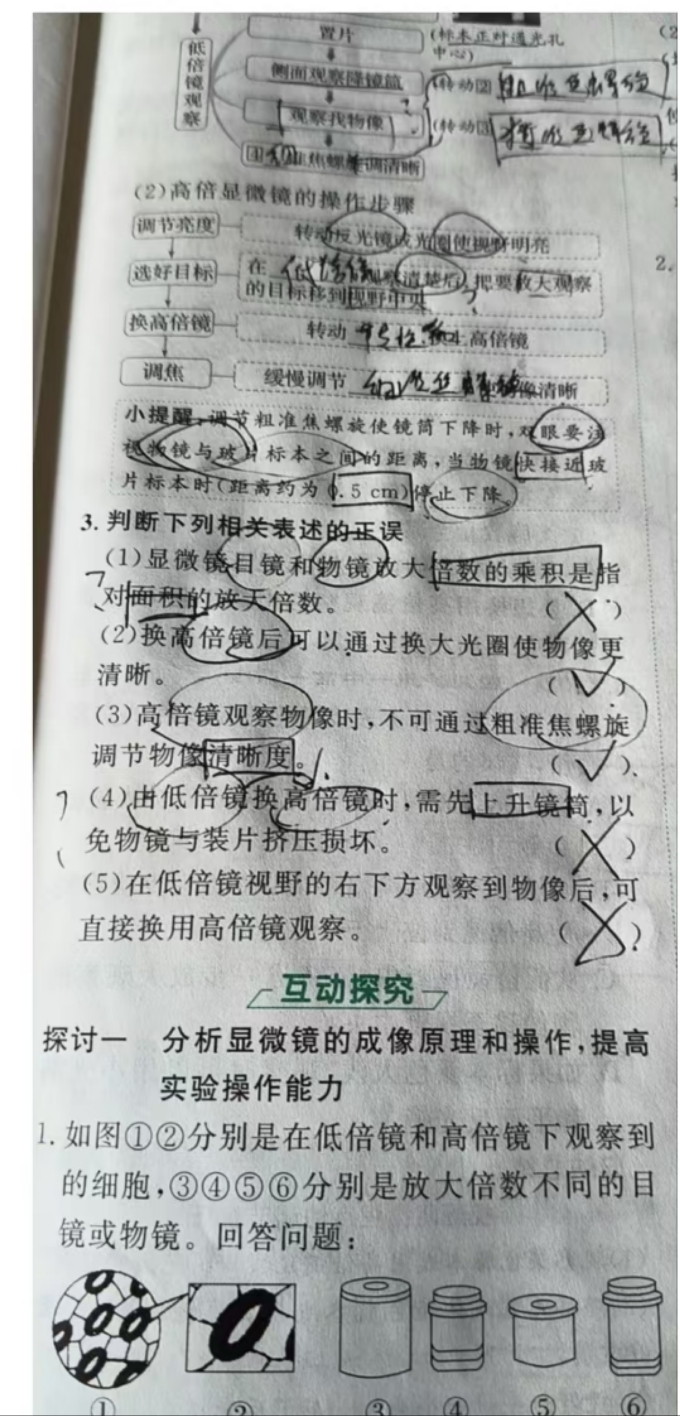 置片
(标本正对通光孔
中心)
低倍镜观察
侧面观察降镜筒
(转动②
观察找物像
(转动③
调清晰
(2)高倍显微镜的操作步骤
调节亮度
转动反光镜或光圈使视野明亮
选好目标
在 低倍镜 观察清楚后,把要放大观察
的目标移到视野中央
2.
换高倍镜
转动 高倍镜
调焦
缓慢调节 物像清晰
小提醒:调节粗准焦螺旋使镜筒下降时,双眼要注
视物镜与玻片标本之间的距离,当物镜快接近玻
片标本时(距离约为0.5 cm)停止下降。
3. 判断下列相关表述的正误
(1)显微镜目镜和物镜放大倍数的乘积是指
对面积的放大倍数。 (×)
(2)换高倍镜后可以通过换大光圈使物像更
清晰。 (√)
(3)高倍镜观察物像时,不可通过粗准焦螺旋
调节物像清晰度。 (√)
(4)由低倍镜换高倍镜时,需先上升镜筒,以
免物镜与装片挤压损坏。 (×)
(5)在低倍镜视野的右下方观察到物像后,可
直接换用高倍镜观察。 (×)
互动探究
探讨一 分析显微镜的成像原理和操作,提高
实验操作能力
1. 如图①②分别是在低倍镜和高倍镜下观察到
的细胞,③④⑤⑥分别是放大倍数不同的目
镜或物镜。回答问题:
① ② ③ ④ ⑤ ⑥